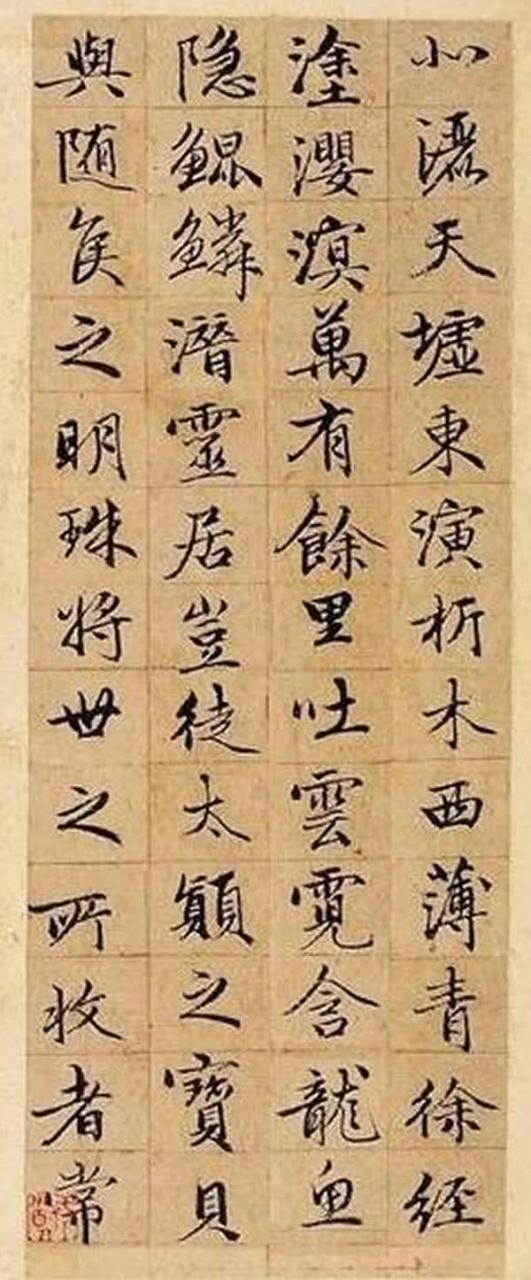 北灑天墟東演析木西薄青徐經
塗瀴溟萬有餘里吐雲霓含龍魚
隐鯤鱗潛靈居豈徒太顛之寶貝
與随侯之明珠将世之所收者常